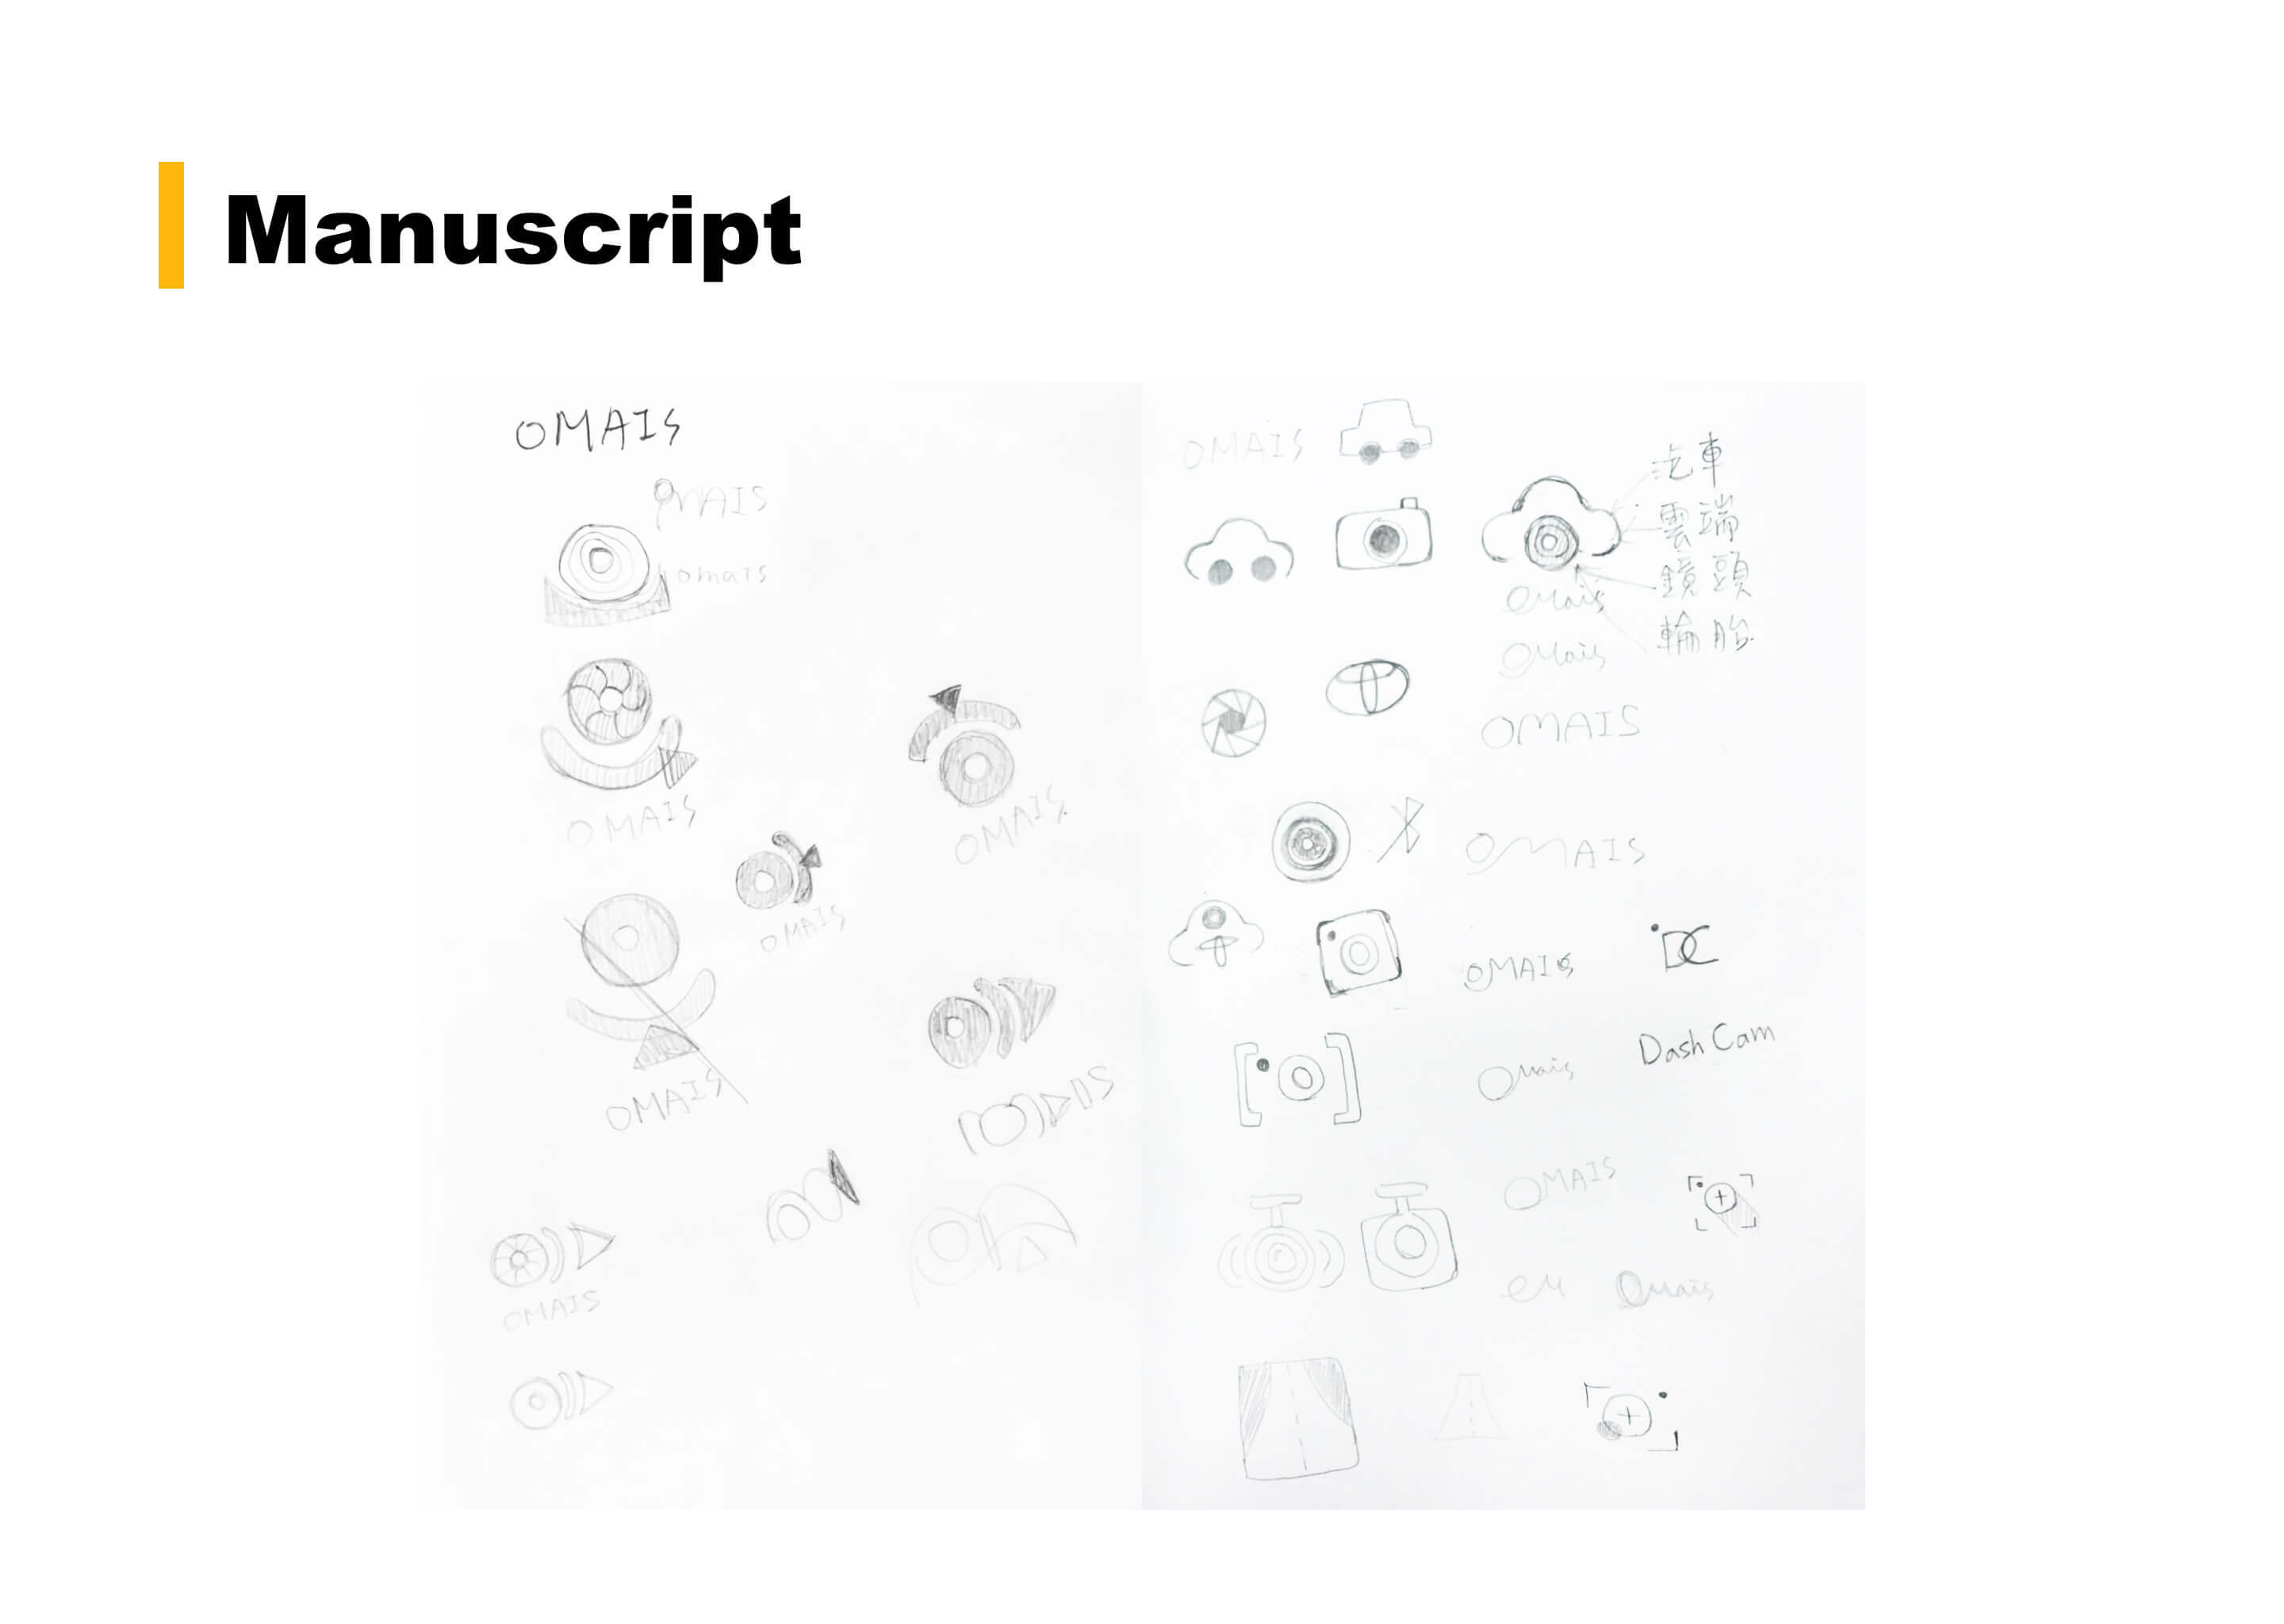 Manuscript
OMAIS
OMAIS
omais
OMAIS
OMAIS
OMAIS
OMAIS
OMAIS
OMAIS
汽車
雲端
鏡頭
輪胎
omais
omais
OMAIS
OMAIS
OMAIS
DC
omais
Dash Cam
OMAIS
OM
omais